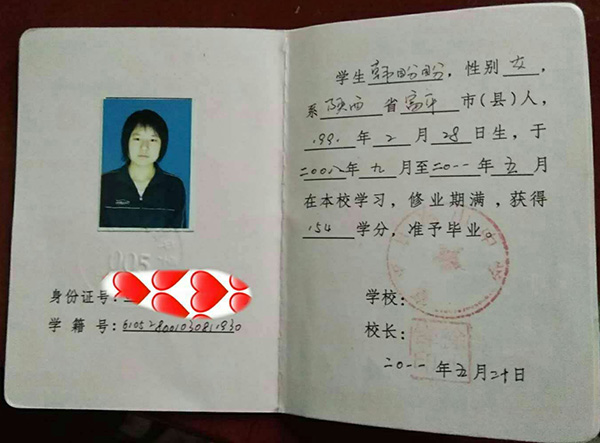 身份证号:
学 籍 号:610528001030811930
学生韩盼盼,性别 女,
系 陕西 省富平 市(县)人,
199 年 2 月 28日生,于
二00八年 九 月至二0一一 年 五 月
在本校学习,修业期满,获得
154 学分,准予毕业。
学校:
校长:
二0一一 年五月二十日